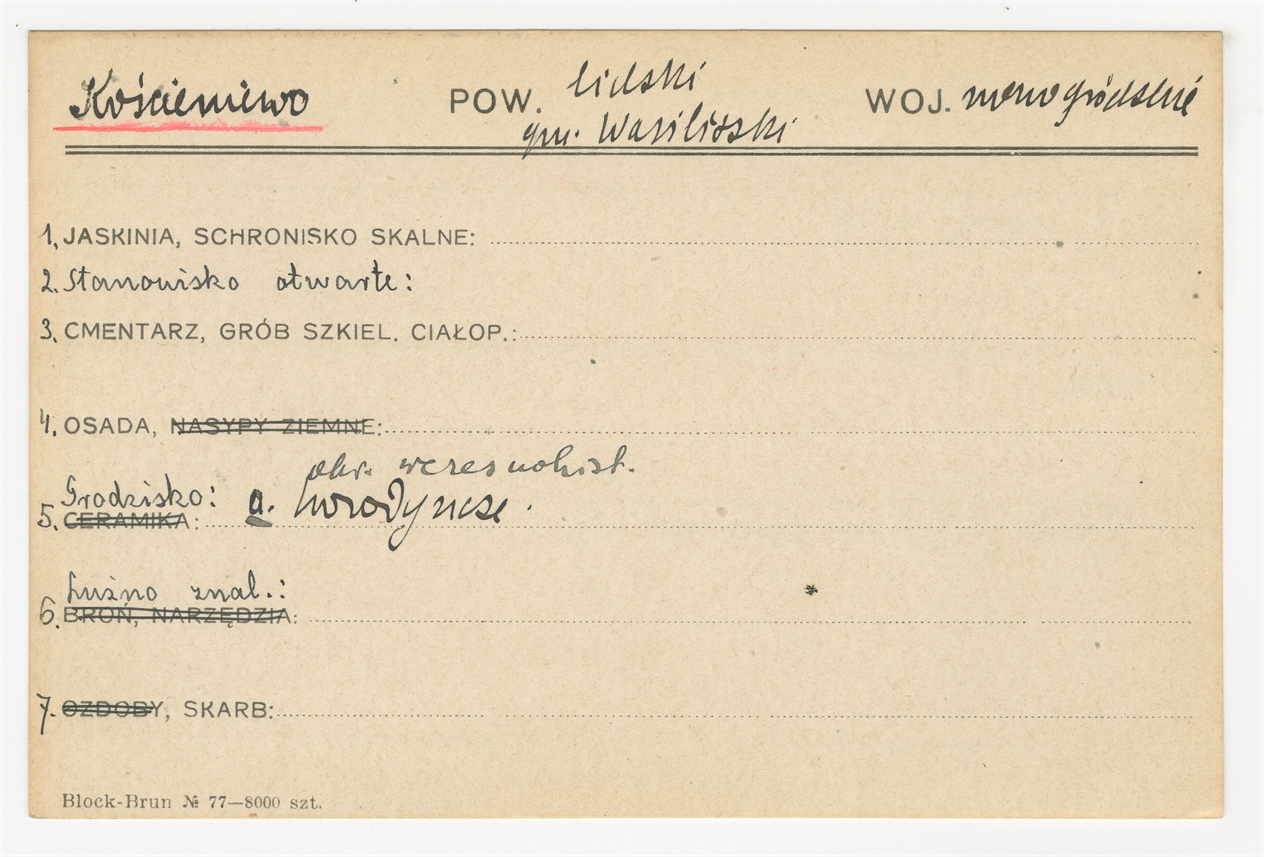 Kościeniewo POW. lidski WOJ. nowogródzkie
gm. Wasiliszki
1. JASKINIA, SCHRONISKO SKALNE:
2. Stanowisko otwarte:
3. CMENTARZ, GRÓB SZKIEL. CIAŁOP.:
4. OSADA, NASYPY ZIEMNE:
okr. wczesnohist.
Grodzisko: a. horodyszcze.
5. CERAMIKA:
Luźno znal.:
6. BROŃ, NARZĘDZIA:
7. OZDOBY, SKARB:
Block-Brun № 77—8000 szt.